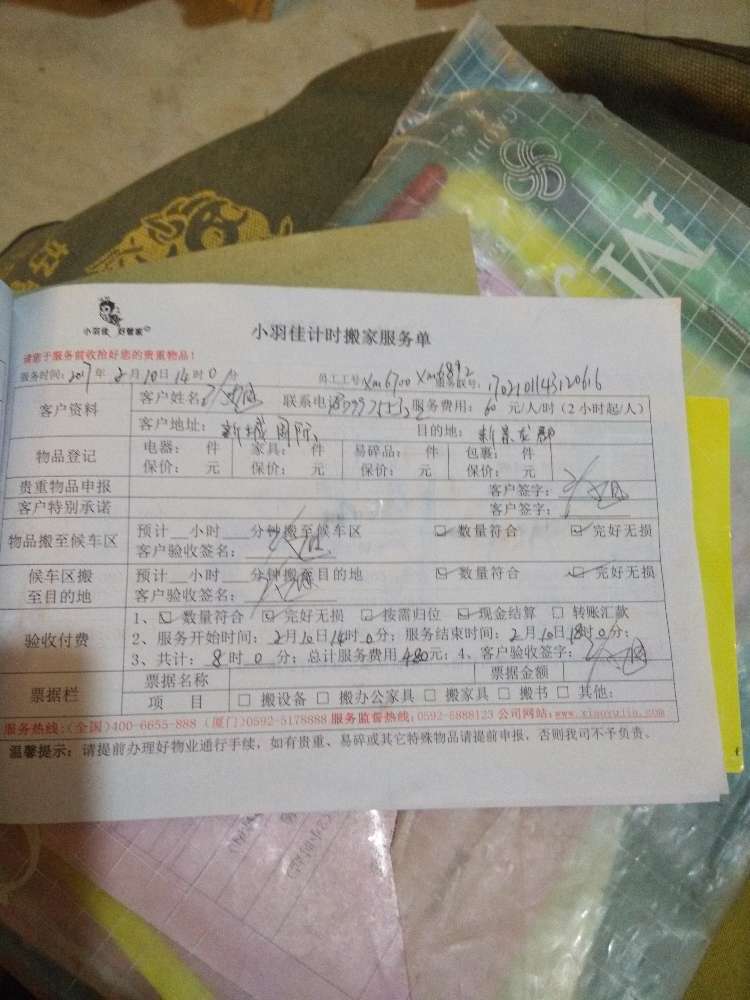 小羽佳 好管家
小羽佳计时搬家服务单
请您于服务前收拾好您的贵重物品!
服务时间:2017年2月10日14时0分 员工工号:Xm6700 Xm6892 1702101143120616
客户资料 客户姓名: 联系电话 服务费用: 60 元/人/时(2小时起/人)
客户地址: 新城国际 目的地: 新景龙郡
物品登记 电器: 件 家具: 件 易碎品: 件 包裹: 件
保价: 元 保价: 元 保价: 元 保价: 元
贵重物品申报 客户签字:
客户特别承诺 客户签字:
物品搬至候车区 预计__小时__分钟搬至候车区 ☑ 数量符合 ☑ 完好无损
客户验收签名:
候车区搬至目的地 预计__小时__分钟搬至目的地 ☑ 数量符合 ☑ 完好无损
客户验收签名:
验收付费 1、☑ 数量符合 ☑ 完好无损 □ 按需归位 ☑ 现金结算 □ 转账汇款
2、服务开始时间: 2月10日14时0分; 服务结束时间: 2月10日18时0分;
3、共计: 8时0分; 总计服务费用480元; 4、客户验收签字:
票据栏 票据名称 票据金额
项 目 □ 搬设备 □ 搬办公家具 □ 搬家具 □ 搬书 □ 其他:
服务热线:(全国)400-6655-888 (厦门)0592-5178888 服务监督热线:0592-5888123 公司网站:www.xiaoyujia.com
温馨提示: 请提前办理好物业通行手续,如有贵重、易碎或其它特殊物品请提前申报,否则我司不予负责。